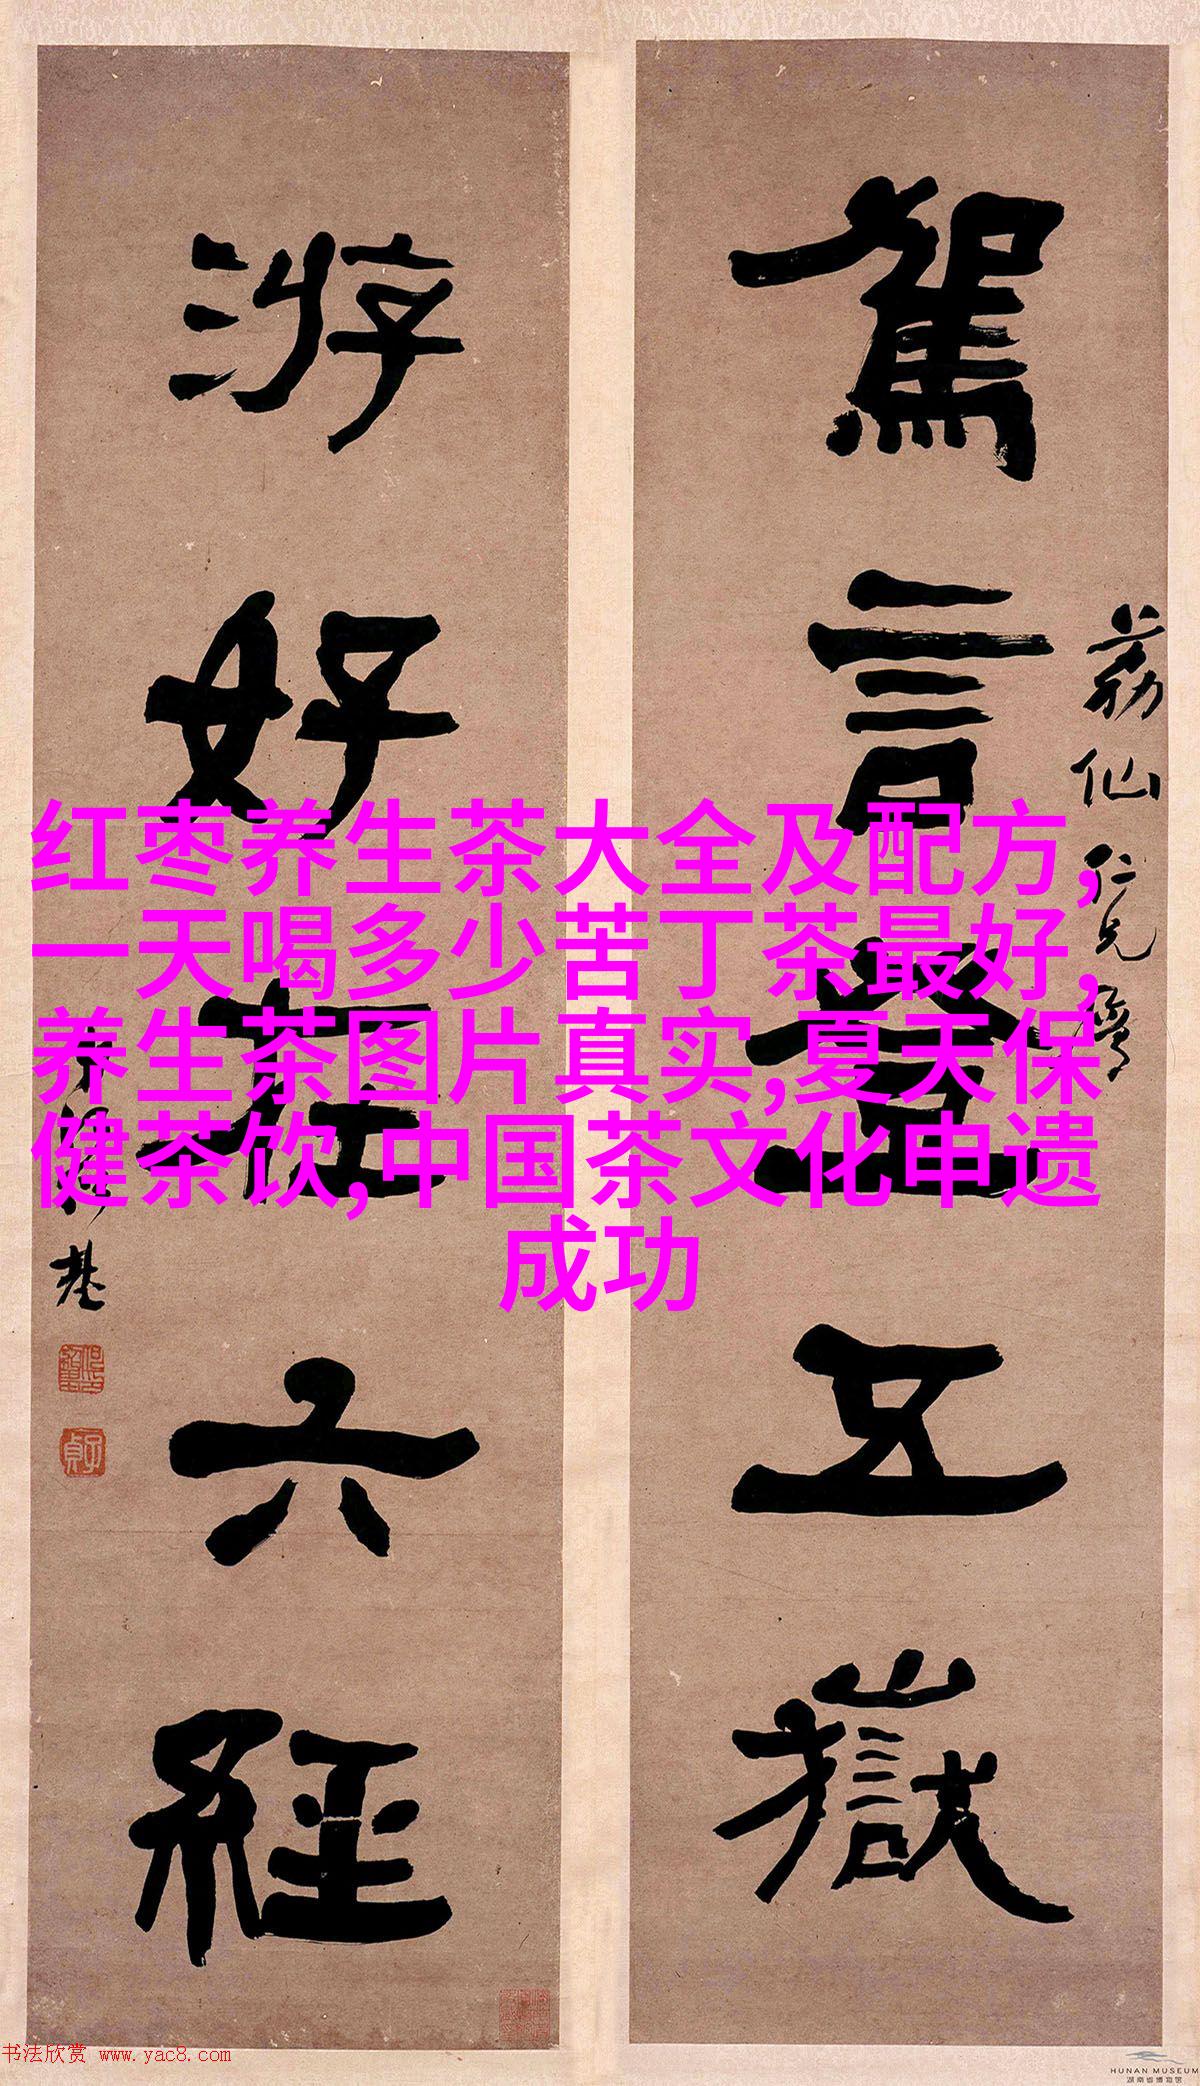 駕言登五嶽
荔仙仁兄
游好在六經
紅枣养生茶大全及配方,
一天喝多少苦丁茶最好,
养生茶图片真实,夏天保
健茶饮,中国茶文化申遗
成功
书法欣赏 www.yac8.com
HUNAN MUSEUM
湖南省博物馆